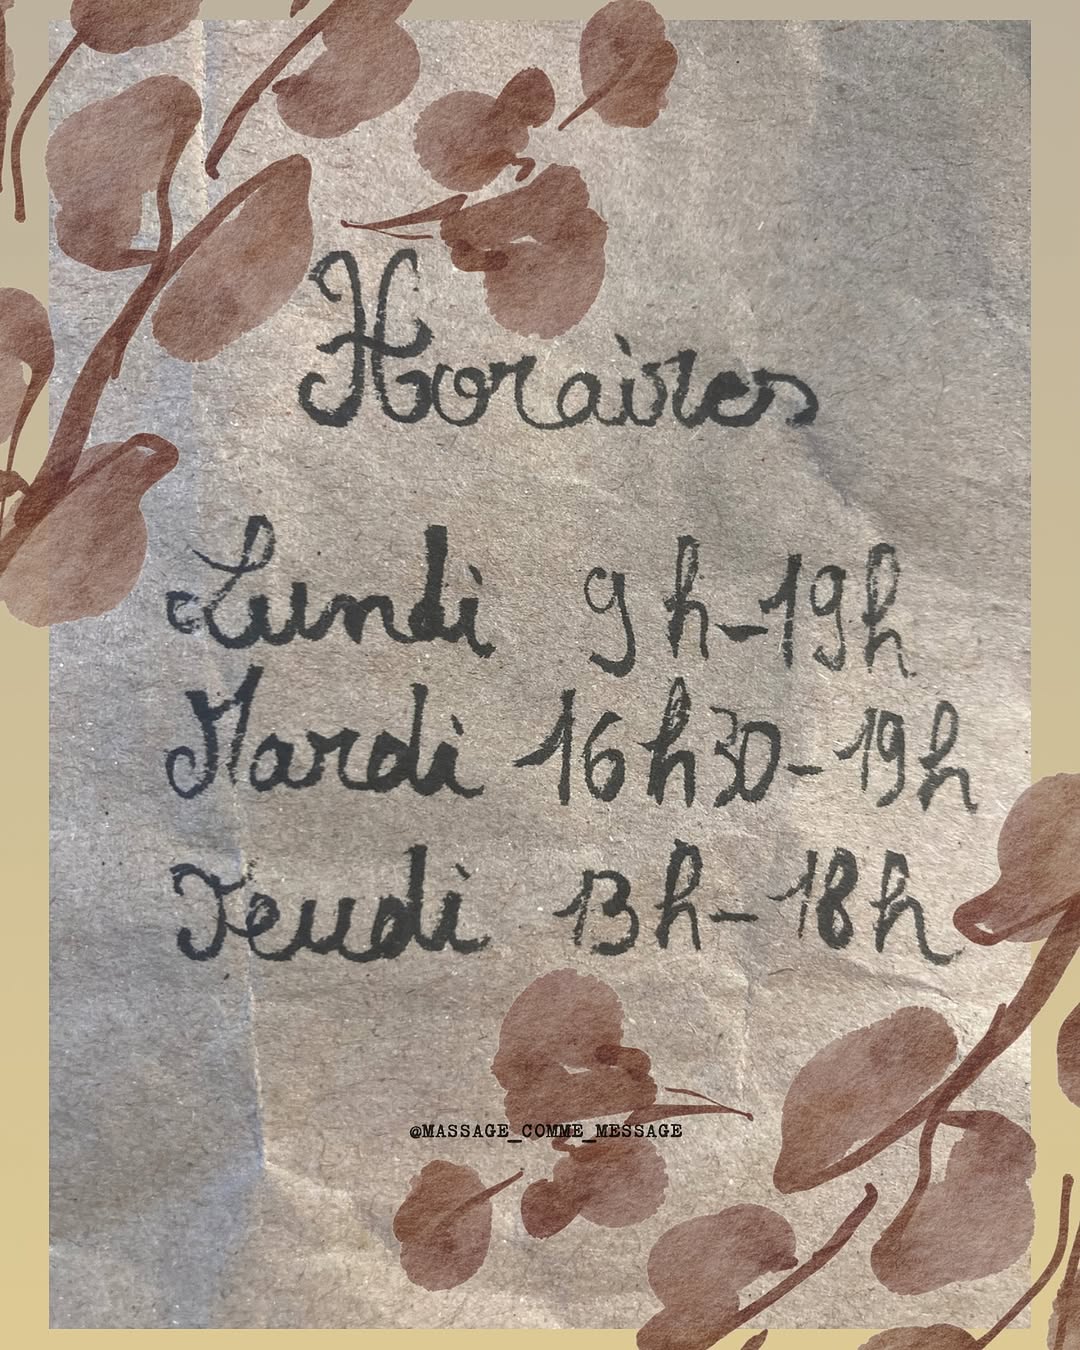 Horaires
Lundi 9h-19h
Mardi 16h30-19h
Jeudi 13h-18h
@MASSAGE_COMME_MESSAGE